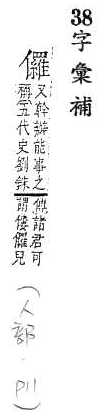 38字彙補
儸
又幹辦能事之
稱五代史劉銖
傳諸君可
謂僂儸兒
(人部·P11)